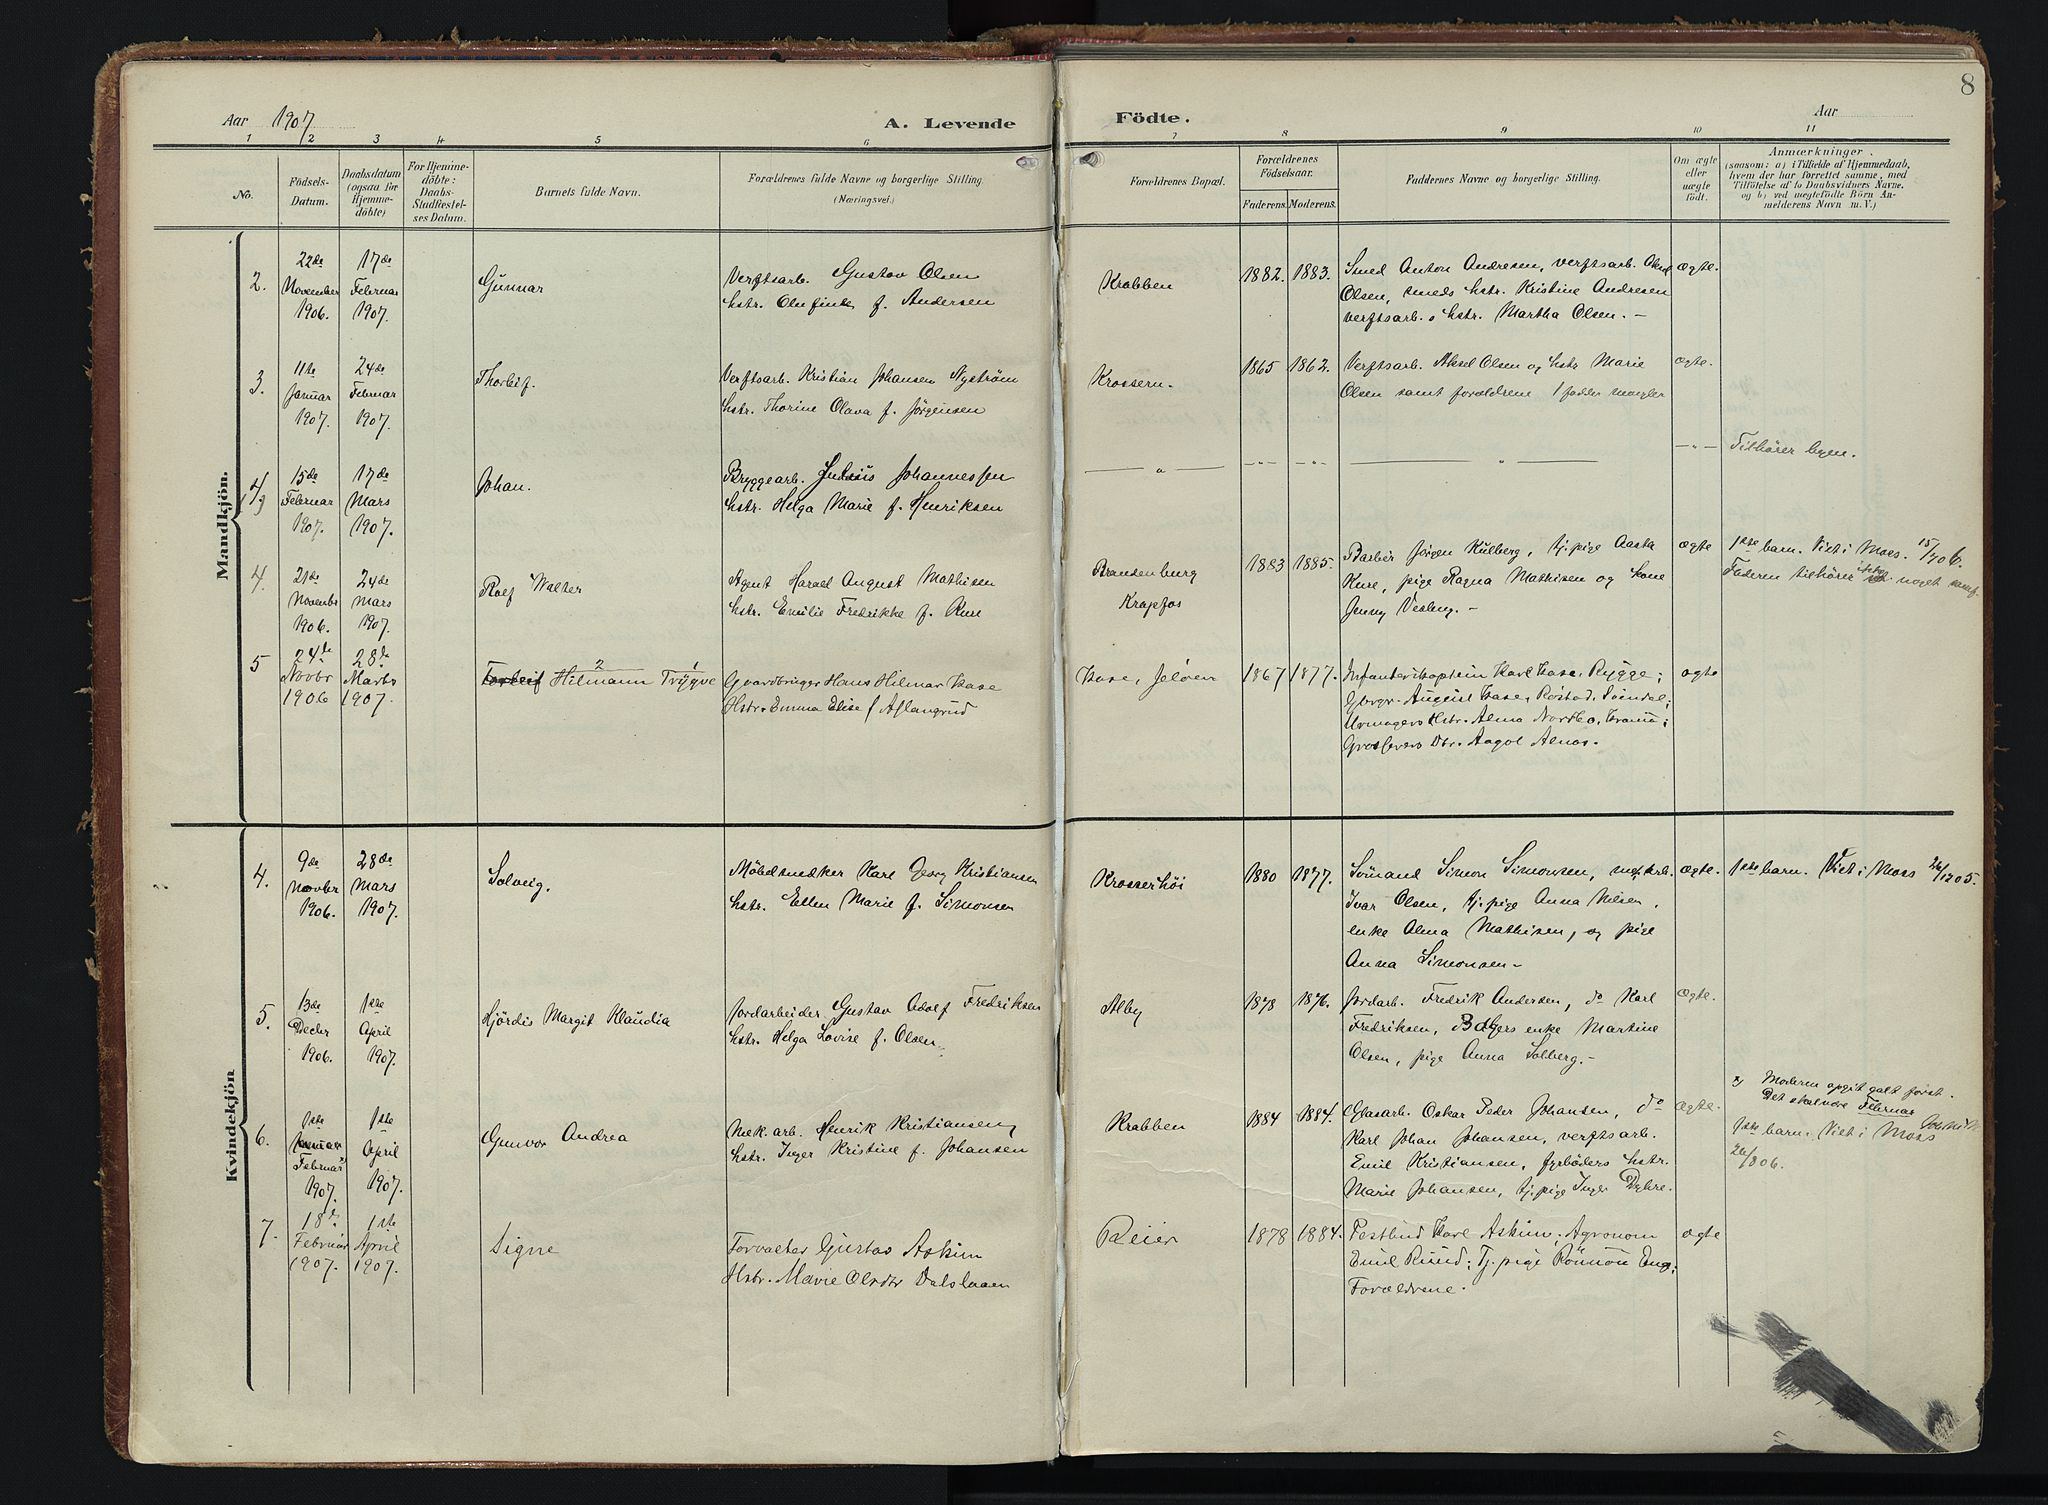 8
Aar 1907
A. Levende Födte.
Aar
1 2 3 4 5 6 7 8 9 10 11
No.
Födsels-Datum.
Daabsdatum (ogsaa for Hjemme-döbte)
For Hjemme-döbte: Daabs-Stadfæstel-ses Datum.
Barnets fulde Navn.
Forældrenes fulde Navne og borgerlige Stilling.
(Næringsvei.)
Forældrenes Bopæl.
Forældrenes Födselsaar.
Faderens. Moderens.
Faddernes Navne og borgerlige Stilling.
Om ægte eller uægte födt.
Anmærkninger.
(saasom: a) i Tilfælde af Hjemmedaab,
hvem der har forrettet samme, med
Tilföielse af to Daabsvidners Navne.
og b) ved uægtefödte Börn An-
melderens Navn m. V.)
Mandkjön.
2.
22de November 1906.
17de Februar 1907.
Gunnar
Verftsarb. Gustav Olsen
hstr. Olufine f. Andersen
Krabben
1882. 1883.
Smed Anton Andresen, verftsarb. Aksel
Olsen, smeds hstr. Kristine Andresen
verftsarb.s hstr. Martha Olsen. -
ægte.
3.
11te Januar 1907.
24de Februar 1907.
Thorleif.
Verftsarb. Kristian Johansen Nyström
hstr. Thorine Olava f. Jörgensen
Krossern.
1865 1862.
Verftsarb. Aksel Olsen og hstr Marie
Olsen samt forældrene 1 fadder mangler
ægte.
15de Februar 1907.
17de Mars 1907.
Johan.
Bryggearb. Julius Johannessen
hstr. Helga Marie f. Henriksen
— " — — " — — " — — " — — " —
Tilhörer byen.
4.
21de Novembr 1906.
24de Mars 1907.
Rolf Walter
Agent Harald August Mathisen
hstr. Emilie Fredrikke f. Kure
Brandenburg
Krapfos
1883 1885.
Barber Jörgen Kulberg, tj.pige Aasta
Kure, pige Ragna Mathisen og kone
Jenny Vesteng. -
ægte
1ste barn. Viet i Moss. 15/7 06.
Faderen tilhörer ikke noget samf.
5
24de Novbr 1906
28de Marts 1907.
Torleif Hilmann 2 Trygve 1
Gaardbruger Hans Hilmar Kase
Hstr. Emma Elise f Aslangrud
Kase, Jeløen
1867 1877.
Infanterikaptein Karl Kase, Rygge;
Gbrgr. August Kase, Röstad, Soindal;
Urmagers Hstr. Alma Nordbo, Tranü;
Grosserers Dtr. Aagot Alnæs.
ægte
Kvindekjön
4.
9de Novbr 1906.
28de Mars 1907.
Solveig.
Möbelsnedker Karl Georg Kristiansen
hstr. Ellen Marie f. Simonsen
Krosserhöi
1880 1877.
Sömand Simon Simonsen, mek.arb.
Ivar Olsen, tj.pige Anna Nilsen,
enke Alma Mathisen, og pige
Anna Simonsen -
ægte.
1ste barn. Viet i Moss 26/12 05.
5.
13de Decbr 1906.
1ste April 1907.
Hjördis Margit Klaudia
Jordarbeider Gustav Adolf Fredriksen
hstr. Helga Lovise f. Olsen
Alby
1878 1876.
Jordarb. Fredrik Andersen, do Karl
Fredriksen, enke Martine
Olsen, pige Anna Solberg. -
ægte.
6.
1ste Januar Februar x) 1907.
1ste April 1907.
Gunvor Andrea
Mek.arb. Henrik Kristiansen
hstr. Inger Kristine f. Johansen
Krabben
1884 1884.
Glasarb. Oskar Peder Johansen, do
Karl Johan Johansen, verftsarb.
Emil Kristiansen, fyrböders hstr.
Marie Johansen, tj.pige Inga Dyhre.
ægte.
x) Moderen opgit galt först.
Det skal være Februar
1ste barn. Viet i Moss
26/8 06.
7.
18de Februar 1907.
1ste April 1907.
Signe
Forvalter Gustav Askim
Hstr. Marie Olsdtr Dalslaaen
Reier
1878 1884.
Postbud Karl Askim; Agronom
Emil Ruud; Tj.pige Rönnou Eng;
Forældrene.
ægte